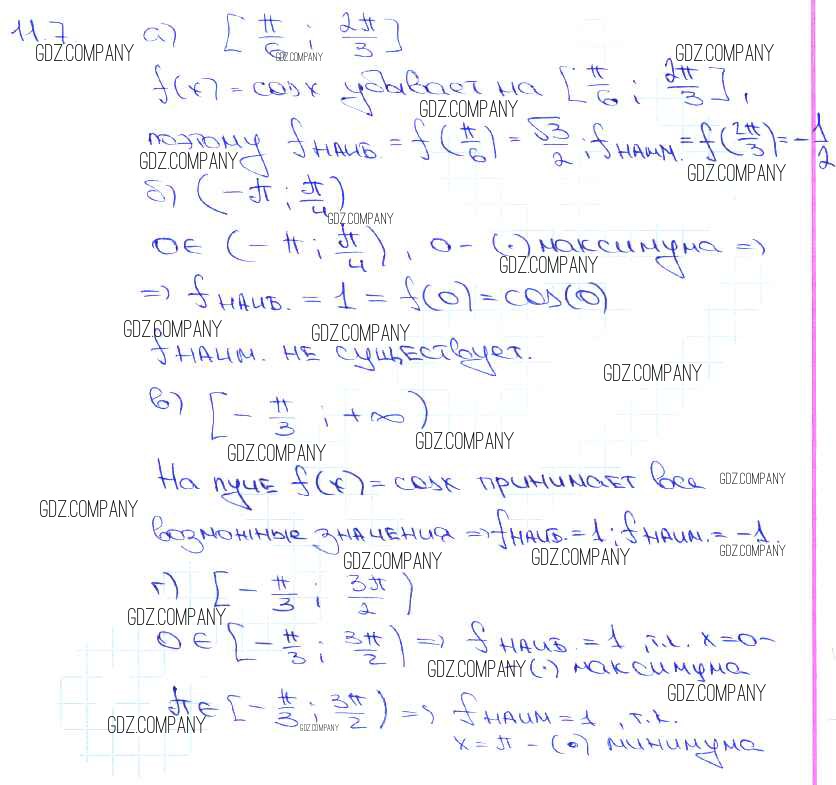 11.7 а) [π/6 ; 2π/3]
GDZ.COMPANY GDZ.COMPANY GDZ.COMPANY
f(x) = cosx убывает на [π/6 ; 2π/3],
GDZ.COMPANY
поэтому fнаиб. = f(π/6) = √3/2 ; fнаим. = f(2π/3) = -1/2
GDZ.COMPANY GDZ.COMPANY
б) (-π ; π/4)
GDZ.COMPANY
0 ∈ (-π ; π/4), 0 - (·) максимума =>
GDZ.COMPANY
=> fнаиб. = 1 = f(0) = cos(0)
GDZ.COMPANY GDZ.COMPANY
fнаим. не существует.
GDZ.COMPANY
в) [-π/3 ; +∞)
GDZ.COMPANY GDZ.COMPANY
На луче f(x) = cosx принимает все
GDZ.COMPANY GDZ.COMPANY
возможные значения => fнаиб. = 1; fнаим. = -1.
GDZ.COMPANY GDZ.COMPANY GDZ.COMPANY
г) [-π/3 ; 3π/2)
GDZ.COMPANY
0 ∈ [-π/3 ; 3π/2) => fнаиб. = 1, т.к. x=0-
GDZ.COMPANY (·) максимума
GDZ.COMPANY
π ∈ [-π/3 ; 3π/2) => fнаим = 1, т.к.
GDZ.COMPANY GDZ.COMPANY
x = π - (·) минимума